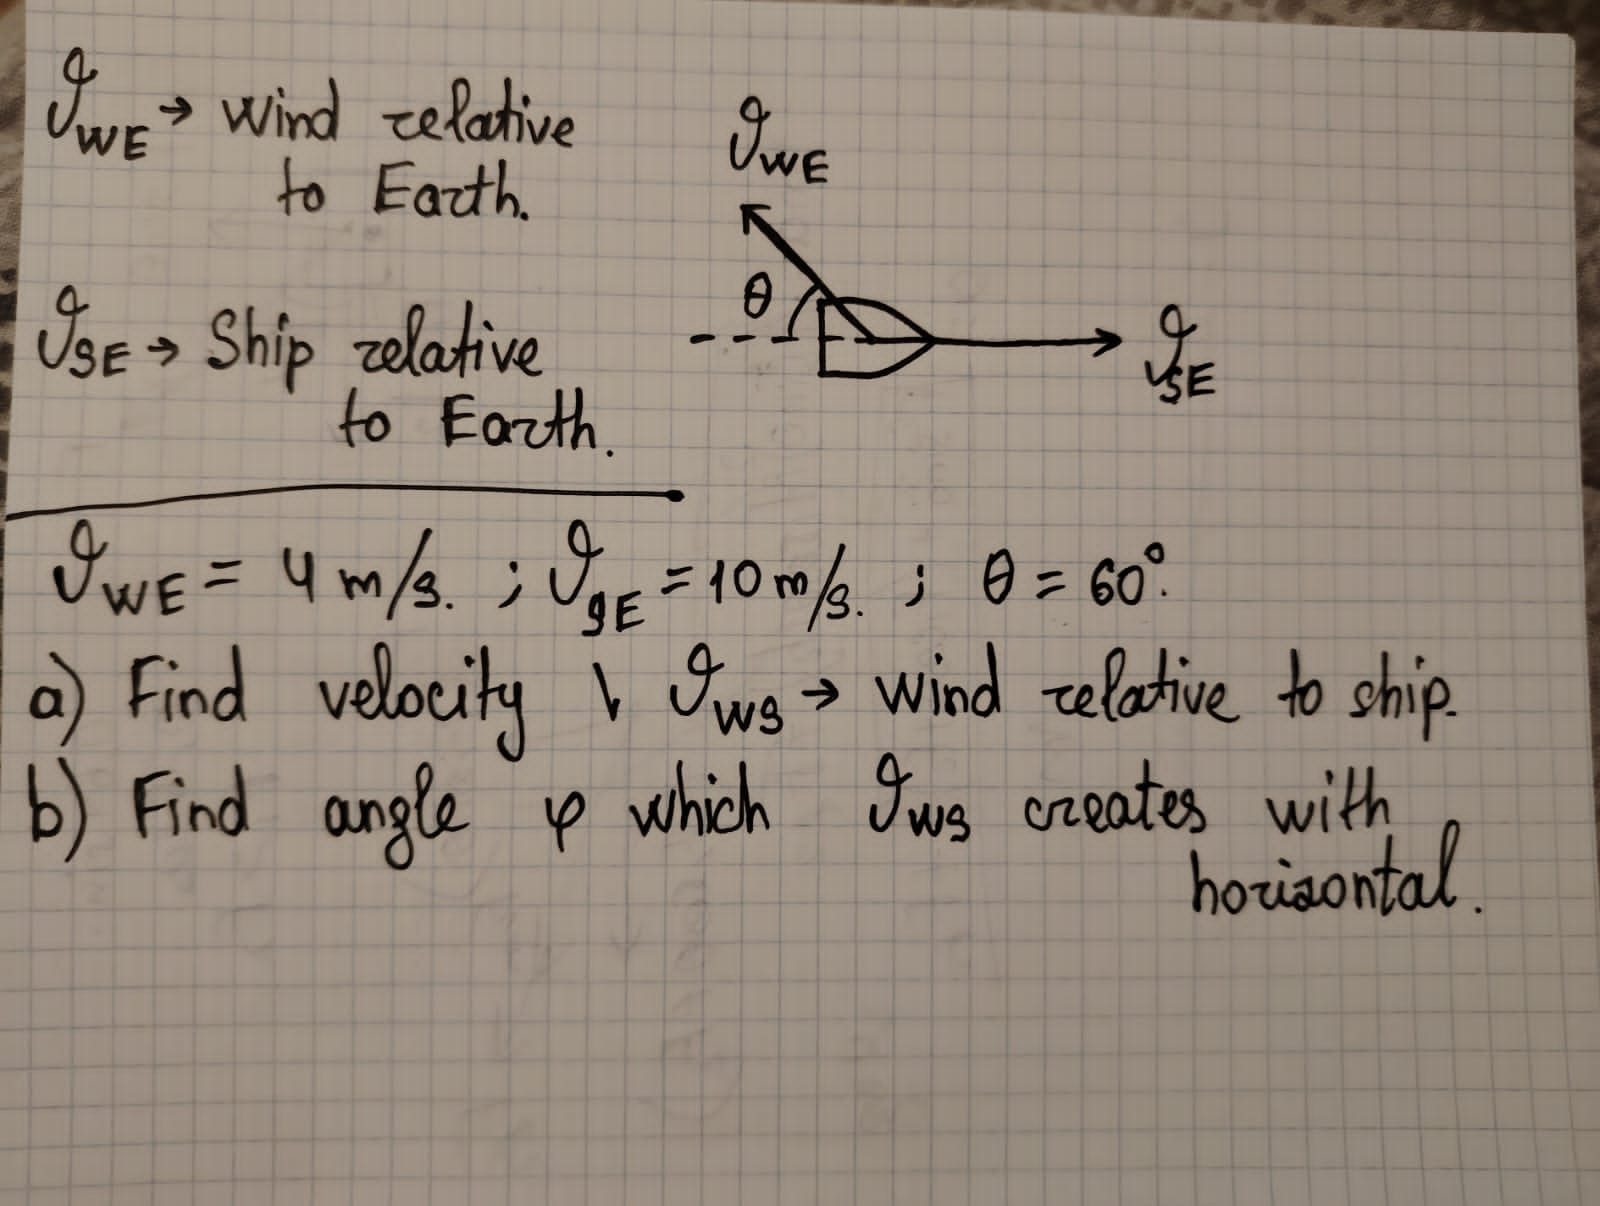 ϑWE → Wind relative
to Earth.
ϑSE → Ship relative
to Earth.
ϑWE
θ
ϑSE
ϑWE = 4 m/s. ; ϑSE = 10 m/s. ; θ = 60°.
a) Find velocity ϑWS → Wind relative to ship.
b) Find angle φ which ϑWS creates with
horizontal.